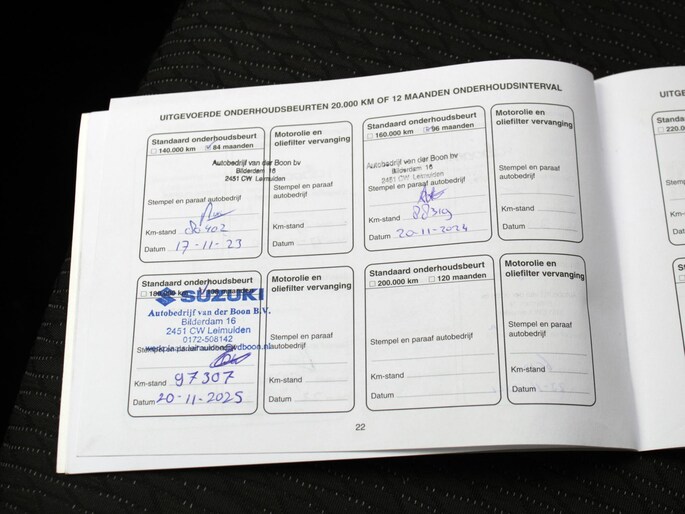 UITGEVOERDE ONDERHOUDSBEURTEN 20.000 KM OF 12 MAANDEN ONDERHOUDSINTERVAL
UITGEV
Standaard onderhoudsbeurt
140.000 km 84 maanden
Autobedrijf van der Boon bv
Bilderdam 16
2451 CW Leimuiden
Stempel en paraaf autobedrijf
Km-stand
Datum 17-11-23
Motorolie en
oliefilter vervanging
Stempel en paraaf
autobedrijf
Km-stand
Datum
Standaard onderhoudsbeurt
160.000 km 96 maanden
Autobedrijf van der Boon bv
Bilderdam 16
2451 CW Leimuiden
Stempel en paraaf autobedrijf
Km-stand
Datum 20-11-2024
Motorolie en
oliefilter vervanging
Stempel en paraaf
autobedrijf
Km-stand
Datum
220.0
Stem
Km-s
Datu
Standaard onderhoudsbeurt
SUZUKI
Autobedrijf van der Boon B.V.
Bilderdam 16
2451 CW Leimuiden
0172-508142
Km-stand 97307
Datum 20-11-2025
Motorolie en
oliefilter vervanging
Stempel en paraaf
autobedrijf
Km-stand
Datum
Standaard onderhoudsbeurt
200.000 km 120 maanden
Stempel en paraaf autobedrijf
Km-stand
Datum
Motorolie en
oliefilter vervanging
Stempel en paraaf
autobedrijf
Km-stand
Datum
22